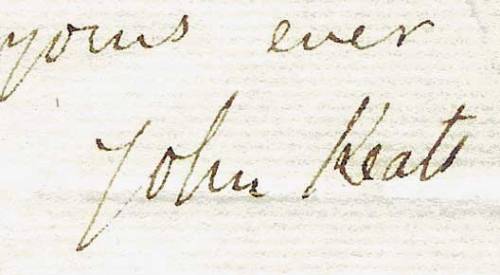 yours ever
John Keats